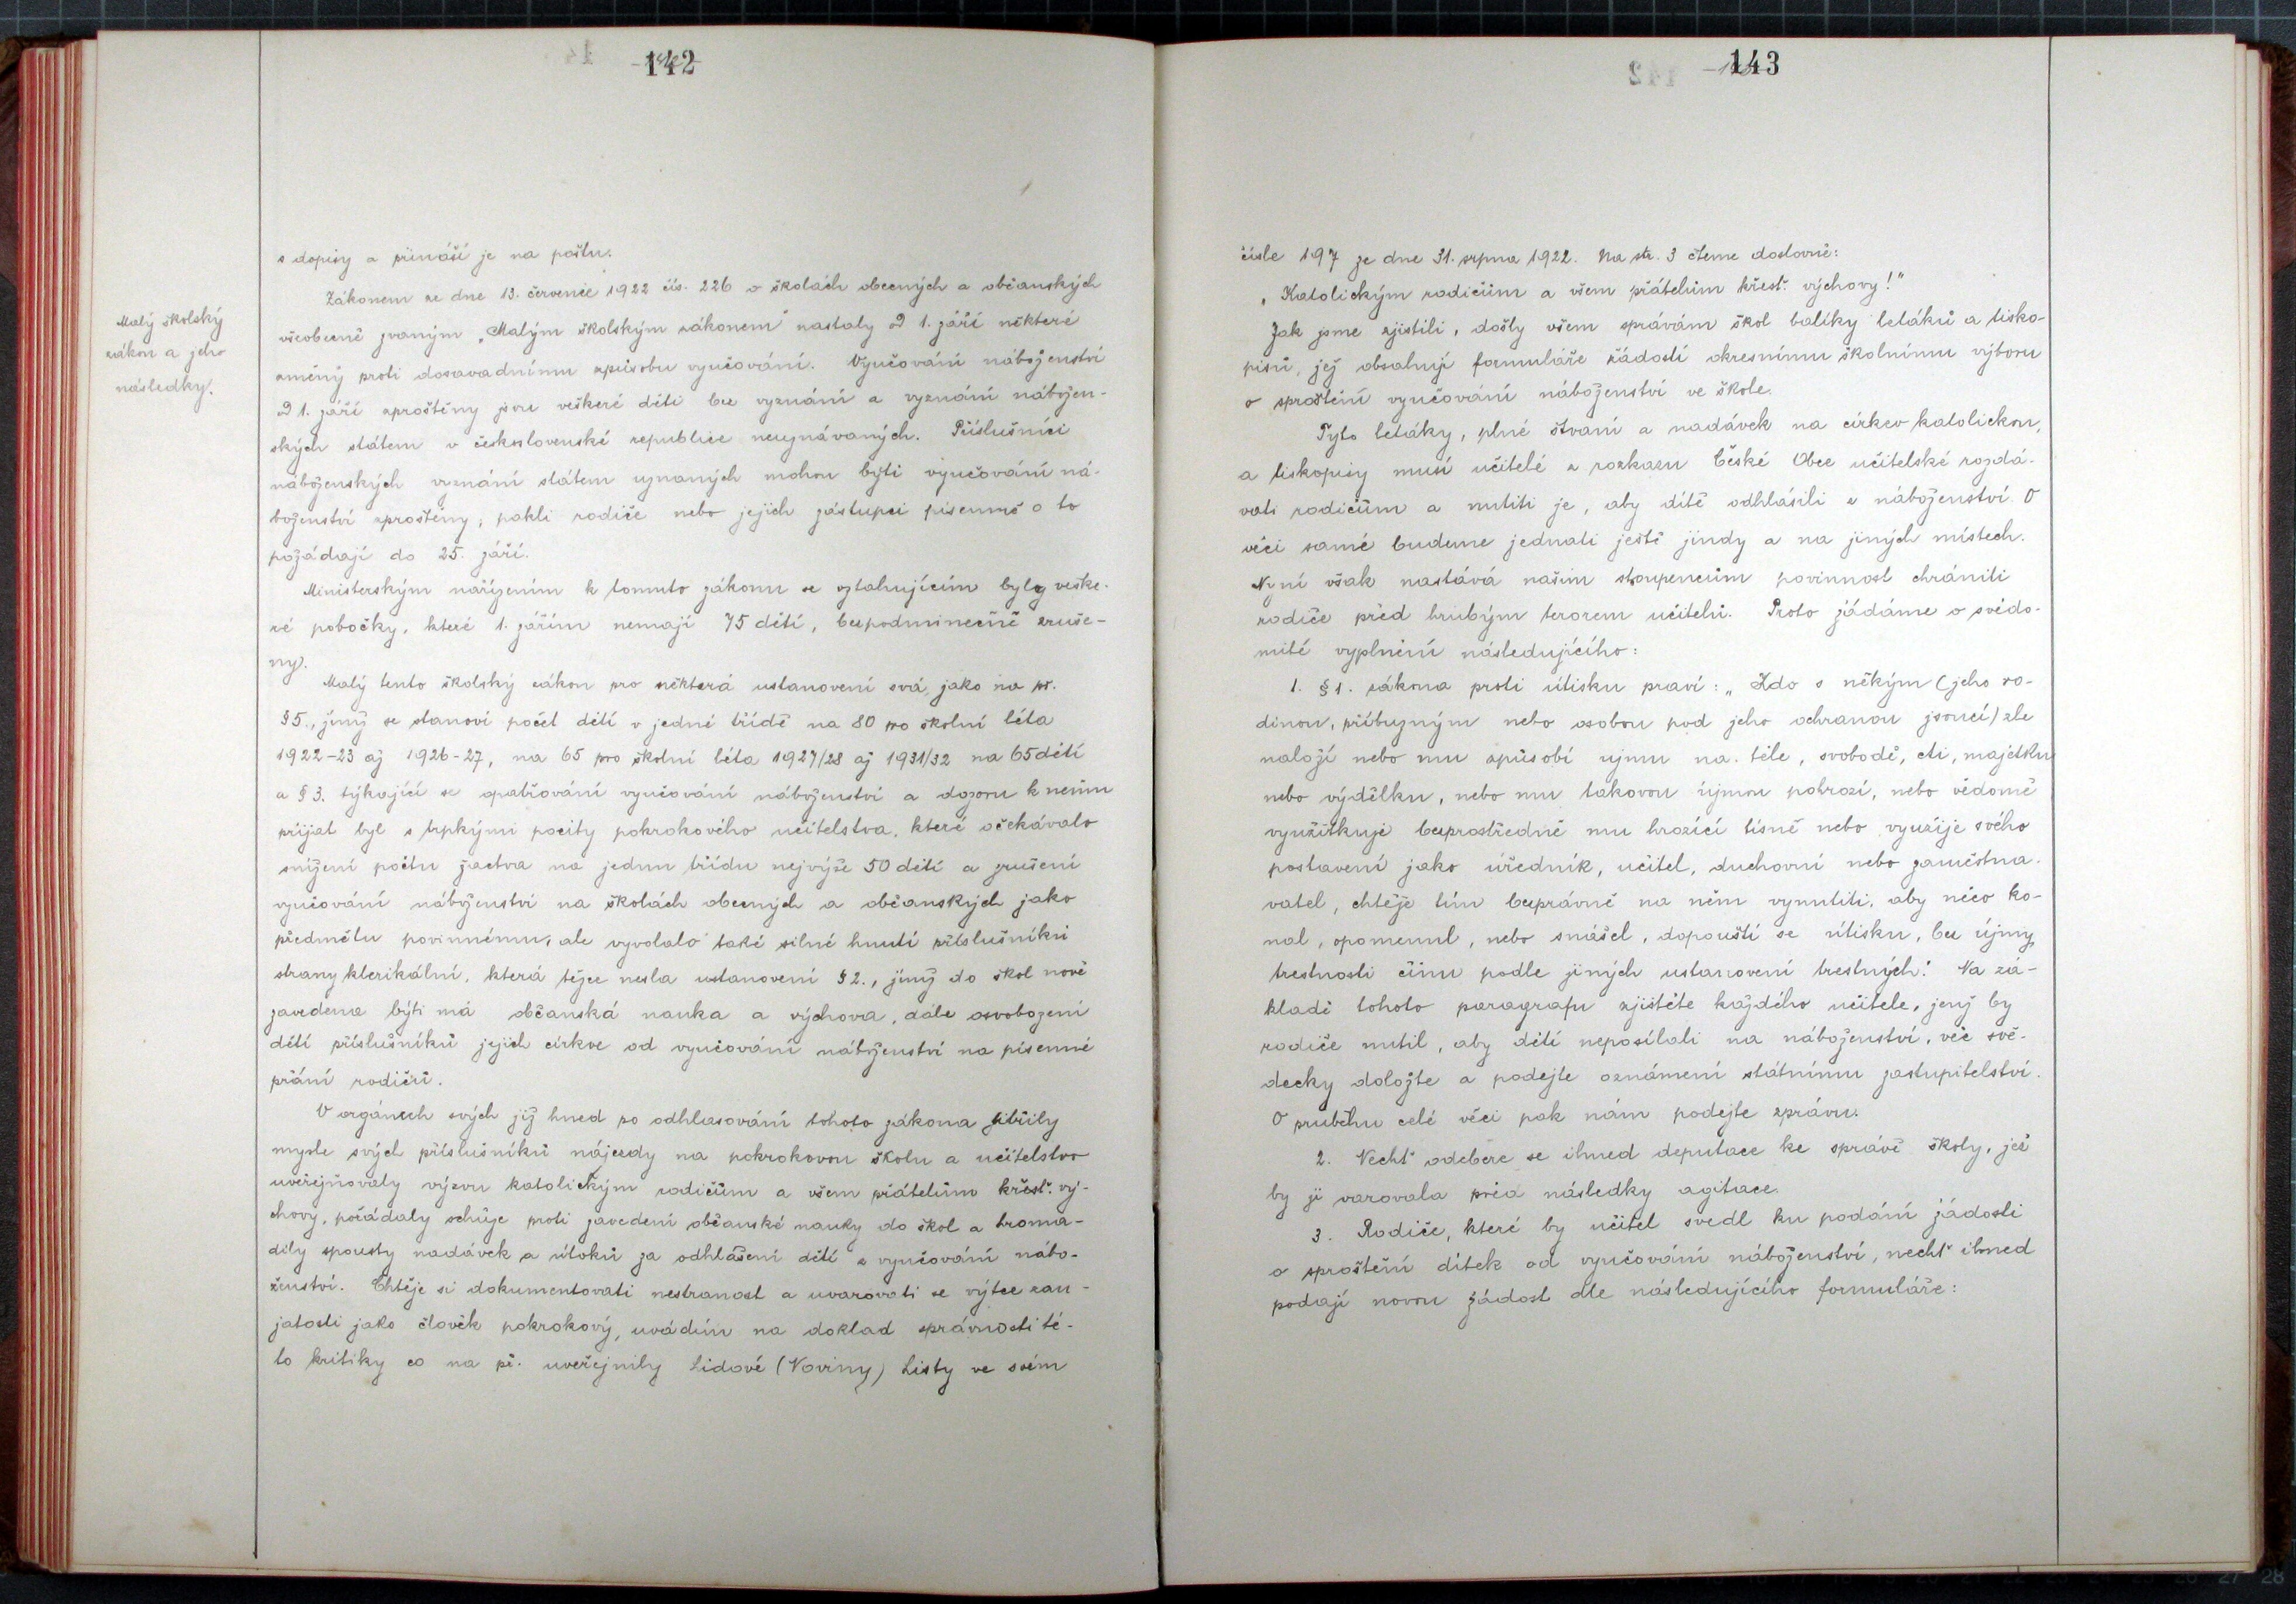 142
s dopisy a přináší je na poštu.
Zákonem ze dne 13. července 1922 čís. 226 o školách obecných a občanských
Malý školský
zákon a jeho
následky.
všeobecně zvaným „Malým školským zákonem" nastaly od 1. září některé
změny proti dosavadnímu způsobu vyučování. Vyučování náboženství
od 1. září zproštěny jsou veškeré děti bez vyznání a vyznání nábožen-
ských státem v československé republice neuznávaných. Příslušníci
náboženských vyznání státem uznaných mohou býti vyučování ná-
boženství zproštěny, pakli rodiče nebo jejich zástupci písemně o to
požádají do 25. září.
Ministerským nařízením k tomuto zákonu se vztahujícím byly veške-
ré pobočky, které 1. zářím nemají 75 dětí, bezpodminečně zruše-
ny.
Malý tento školský zákon pro některá ustanovení svá, jako na př.
§ 5., jímž se stanoví počet dětí v jedné třídě na 80 pro školní léta
1922-23 až 1926-27, na 65 pro školní léta 1927/28 až 1931/32 na 65 dětí
a § 3. týkající se opatřování vyučování náboženství a dozoru k němu
přijat byl s trpkými pocity pokrokového učitelstva, které očekávalo
snížení počtu žactva na jednu třídu nejvýše 50 dětí a zrušení
vyučování náboženství na školách obecných a občanských jako
předmětu povinnému, ale vyvolalo také silné hnutí příslušníků
strany klerikální, která těžce nesla ustanovení § 2., jímž do škol nově
zavedena býti má občanská nauka a výchova, dále osvobození
dětí příslušníků jejich církve od vyučování náboženství na písemné
přání rodičů.
V orgánech svých již hned po odhlasování tohoto zákona jitřily
mysle svých příslušníků nájezdy na pokrokovou školu a učitelstvo
uveřejňovaly výzvu katolickým rodičům a všem přátelům křesť. vý-
chovy, pořádaly schůze proti zavedení občanské nauky do škol a hroma-
dily spousty nadávek a útoků za odhlášení dětí z vyučování nábo-
ženství. Chtěje si dokumentovati nestranost a uvarovati se výtce zau-
jatosti jako člověk pokrokový, uvádím na doklad správnosti té-
to kritiky co na př. uveřejnily Lidové (Noviny) Listy ve svém
143
čísle 197 ze dne 31. srpna 1922. Na str. 3 čteme doslovně:
„Katolickým rodičům a všem přátelům křesť. výchovy!"
Jak jsme zjistili, došly všem správám škol balíky letáků a tisko-
pisů, jež obsahují formuláře žádostí okresnímu školnímu výboru
o sproštění vyučování náboženství ve škole.
Tyto letáky, plné štvaní a nadávek na církev katolickou,
a tiskopisy musí učitelé z rozkazu České Obce učitelské rozdá-
vati rodičům a nutiti je, aby dítě odhlásili z náboženství. O
věci samé budeme jednati ještě jindy a na jiných místech.
Nyní však nastává našim stoupencům povinnost chrániti
rodiče před hrubým terorem učitelů. Proto žádáme o svědo-
mité vyplnění následujícího:
1. § 1. zákona proti útisku praví: „Kdo s někým (jeho ro-
dinou, příbuzným nebo osobou pod jeho ochranou jsoucí) zle
naloží nebo mu způsobí ujmu na těle, svobodě, cti, majetku
nebo výdělku, nebo mu takovou újmou pohrozí, nebo vědomě
využitkuje bezprostředně mu hrozící tísně nebo využije svého
postavení jako úředník, učitel, duchovní nebo zaměstna-
vatel, chtěje tím bezprávně na něm vynutiti, aby něco ko-
nal, opomenul, nebo snášel, dopouští se útisku, bez újmy
trestnosti činu podle jiných ustanovení trestných." Na zá-
kladě tohoto paragrafu zjistěte každého učitele, jenž by
rodiče nutil, aby dětí neposílali na náboženství, věc svě-
decky doložte a podejte oznámení státnímu zastupitelství.
O průběhu celé věci pak nám podejte zprávu.
2. Nechť odebere se ihned deputace ke správě školy, jež
by ji varovala před následky agitace.
3. Rodiče, které by učitel svedl ku podání žádosti
o sproštění dítek od vyučování náboženství, nechť ihned
podají novou žádost dle následujícího formuláře:
27 28